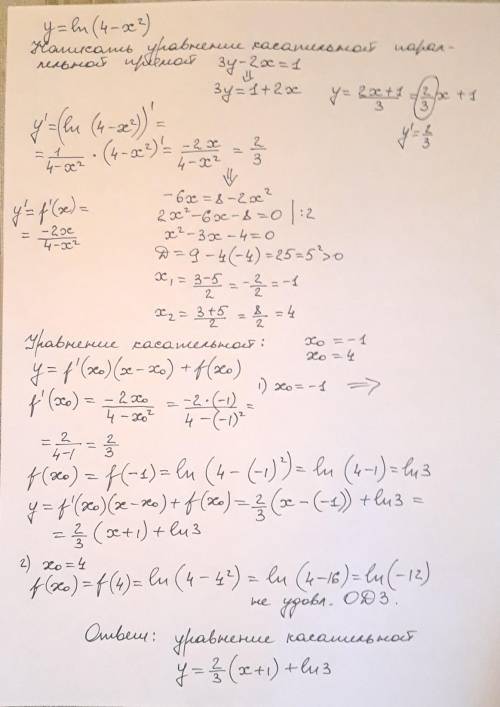 y = ln(4-x²)
Написать уравнение касательной парал-
лельной прямой 3y-2x=1
⇓
3y=1+2x y = (2x+1)/3 = (2/3)x + 1
y' = 2/3
y' = (ln(4-x²))' =
= 1/(4-x²) · (4-x²)' = -2x/(4-x²) = 2/3
⇓
-6x = 8-2x²
y' = f'(x) = 2x²-6x-8=0 |:2
= -2x/(4-x²) x²-3x-4=0
D = 9-4(-4)=25=5²>0
x₁ = (3-5)/2 = -2/2 = -1
x₂ = (3+5)/2 = 8/2 = 4
Уравнение касательной: x₀ = -1
x₀ = 4
y = f'(x₀)(x-x₀)+f(x₀)
1) x₀=-1 ⇒
f'(x₀) = -2x₀/(4-x₀²) = -2·(-1)/(4-(-1)²) =
= 2/(4-1) = 2/3
f(x₀) = f(-1) = ln(4-(-1)²) = ln(4-1) = ln3
y = f'(x₀)(x-x₀)+f(x₀) = 2/3(x-(-1)) + ln3 =
= 2/3(x+1)+ln3
2) x₀=4
f(x₀)=f(4)=ln(4-4²)=ln(4-16)=ln(-12)
не удовл. ОДЗ.
Ответ: уравнение касательной
y = 2/3(x+1)+ln3